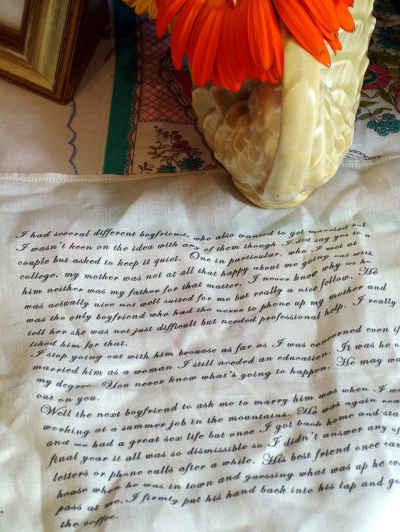 I had several different boyfriends, who also wanted to get married but
I wasn't keen on the idea with any of them though I did say yes to a
couple but asked to keep it quiet. One in particular, who I was at
college, my mother was not at all that happy about me going out with
him neither was my father for that matter. I never knew why as he
was actually nice not well suited for me but really a nice fellow. He
was the only boyfriend who had the nerve to phone up my mother and
tell her she was not just difficult but needed professional help. I really
liked him for that.
I stop going out with him because as far as I was concerned even if
married him as a woman I still needed an education. It was he
my degree. You never know what's going to happen. He may
out on you.
Well the next boyfriend to ask me to marry him was when I
working at a summer job in the mountains. He was again
and we had a great sex life but once I got back home and
final year it all was so dismissible so I didn't answer any
letters or phone calls after a while. His best friend once
house when he was in town and guessing what was up he
pass at me. I firmly put his hand back into his lap and
the coffee.